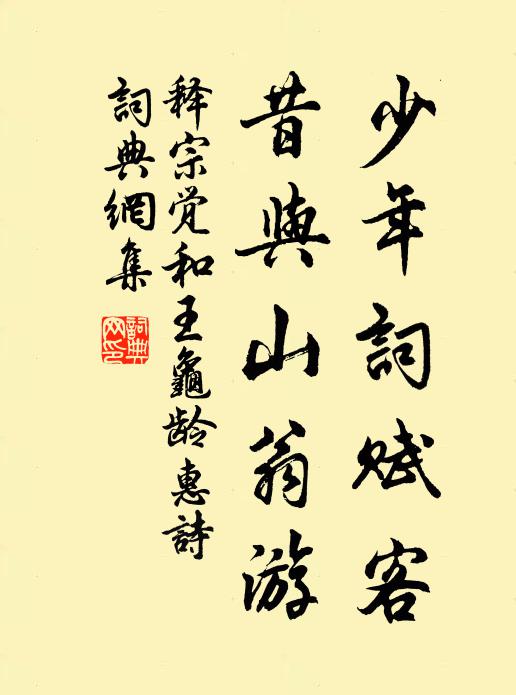 少年詞赋客
昔與山翁游
释宗觉和王龜龄惠詩
詞典網集
詞典
网印